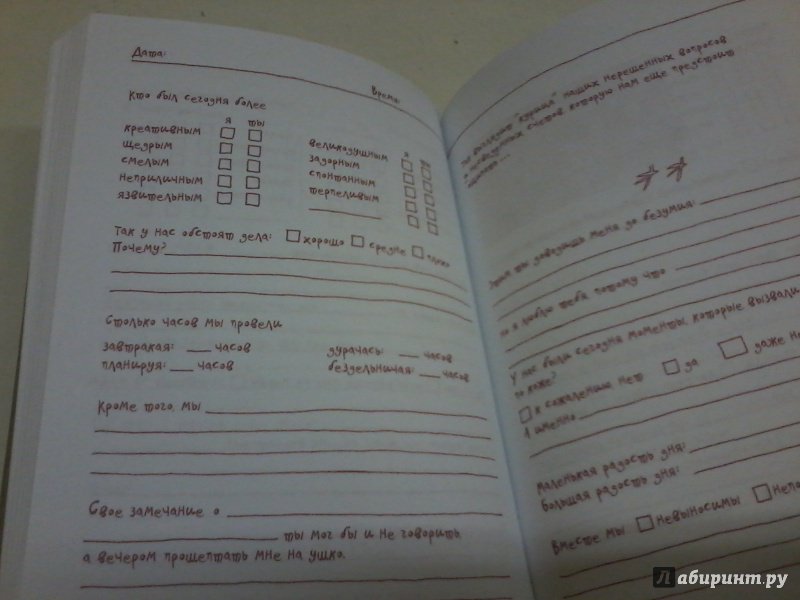 Дата:
Время:
Кто был сегодня более
я ты
креативным
щедрым
смелым
неприличным
язвительным
я
великодушным
задорным
спонтанным
терпеливым
Так у нас обстоят дела: хорошо средне плохо
Почему?
Столько часов мы провели
завтракая: часов
планируя: часов
дурачась: часов
бездельничая: часов
Кроме того, мы
Свое замечание о
ты мог бы и не говорить,
а вечером прошептать мне на ушко.
наших нерешенных вопросов
и несведенных счетов, которую нам еще предстоит
Этим ты доводишь меня до безумия:
но я люблю тебя потому что
У нас были сегодня моменты, которые вызвали
по коже?
к сожалению нет да даже
А именно
маленькая радость дня:
большая радость дня:
Вместе мы невыносимы
Лабиринт.ру